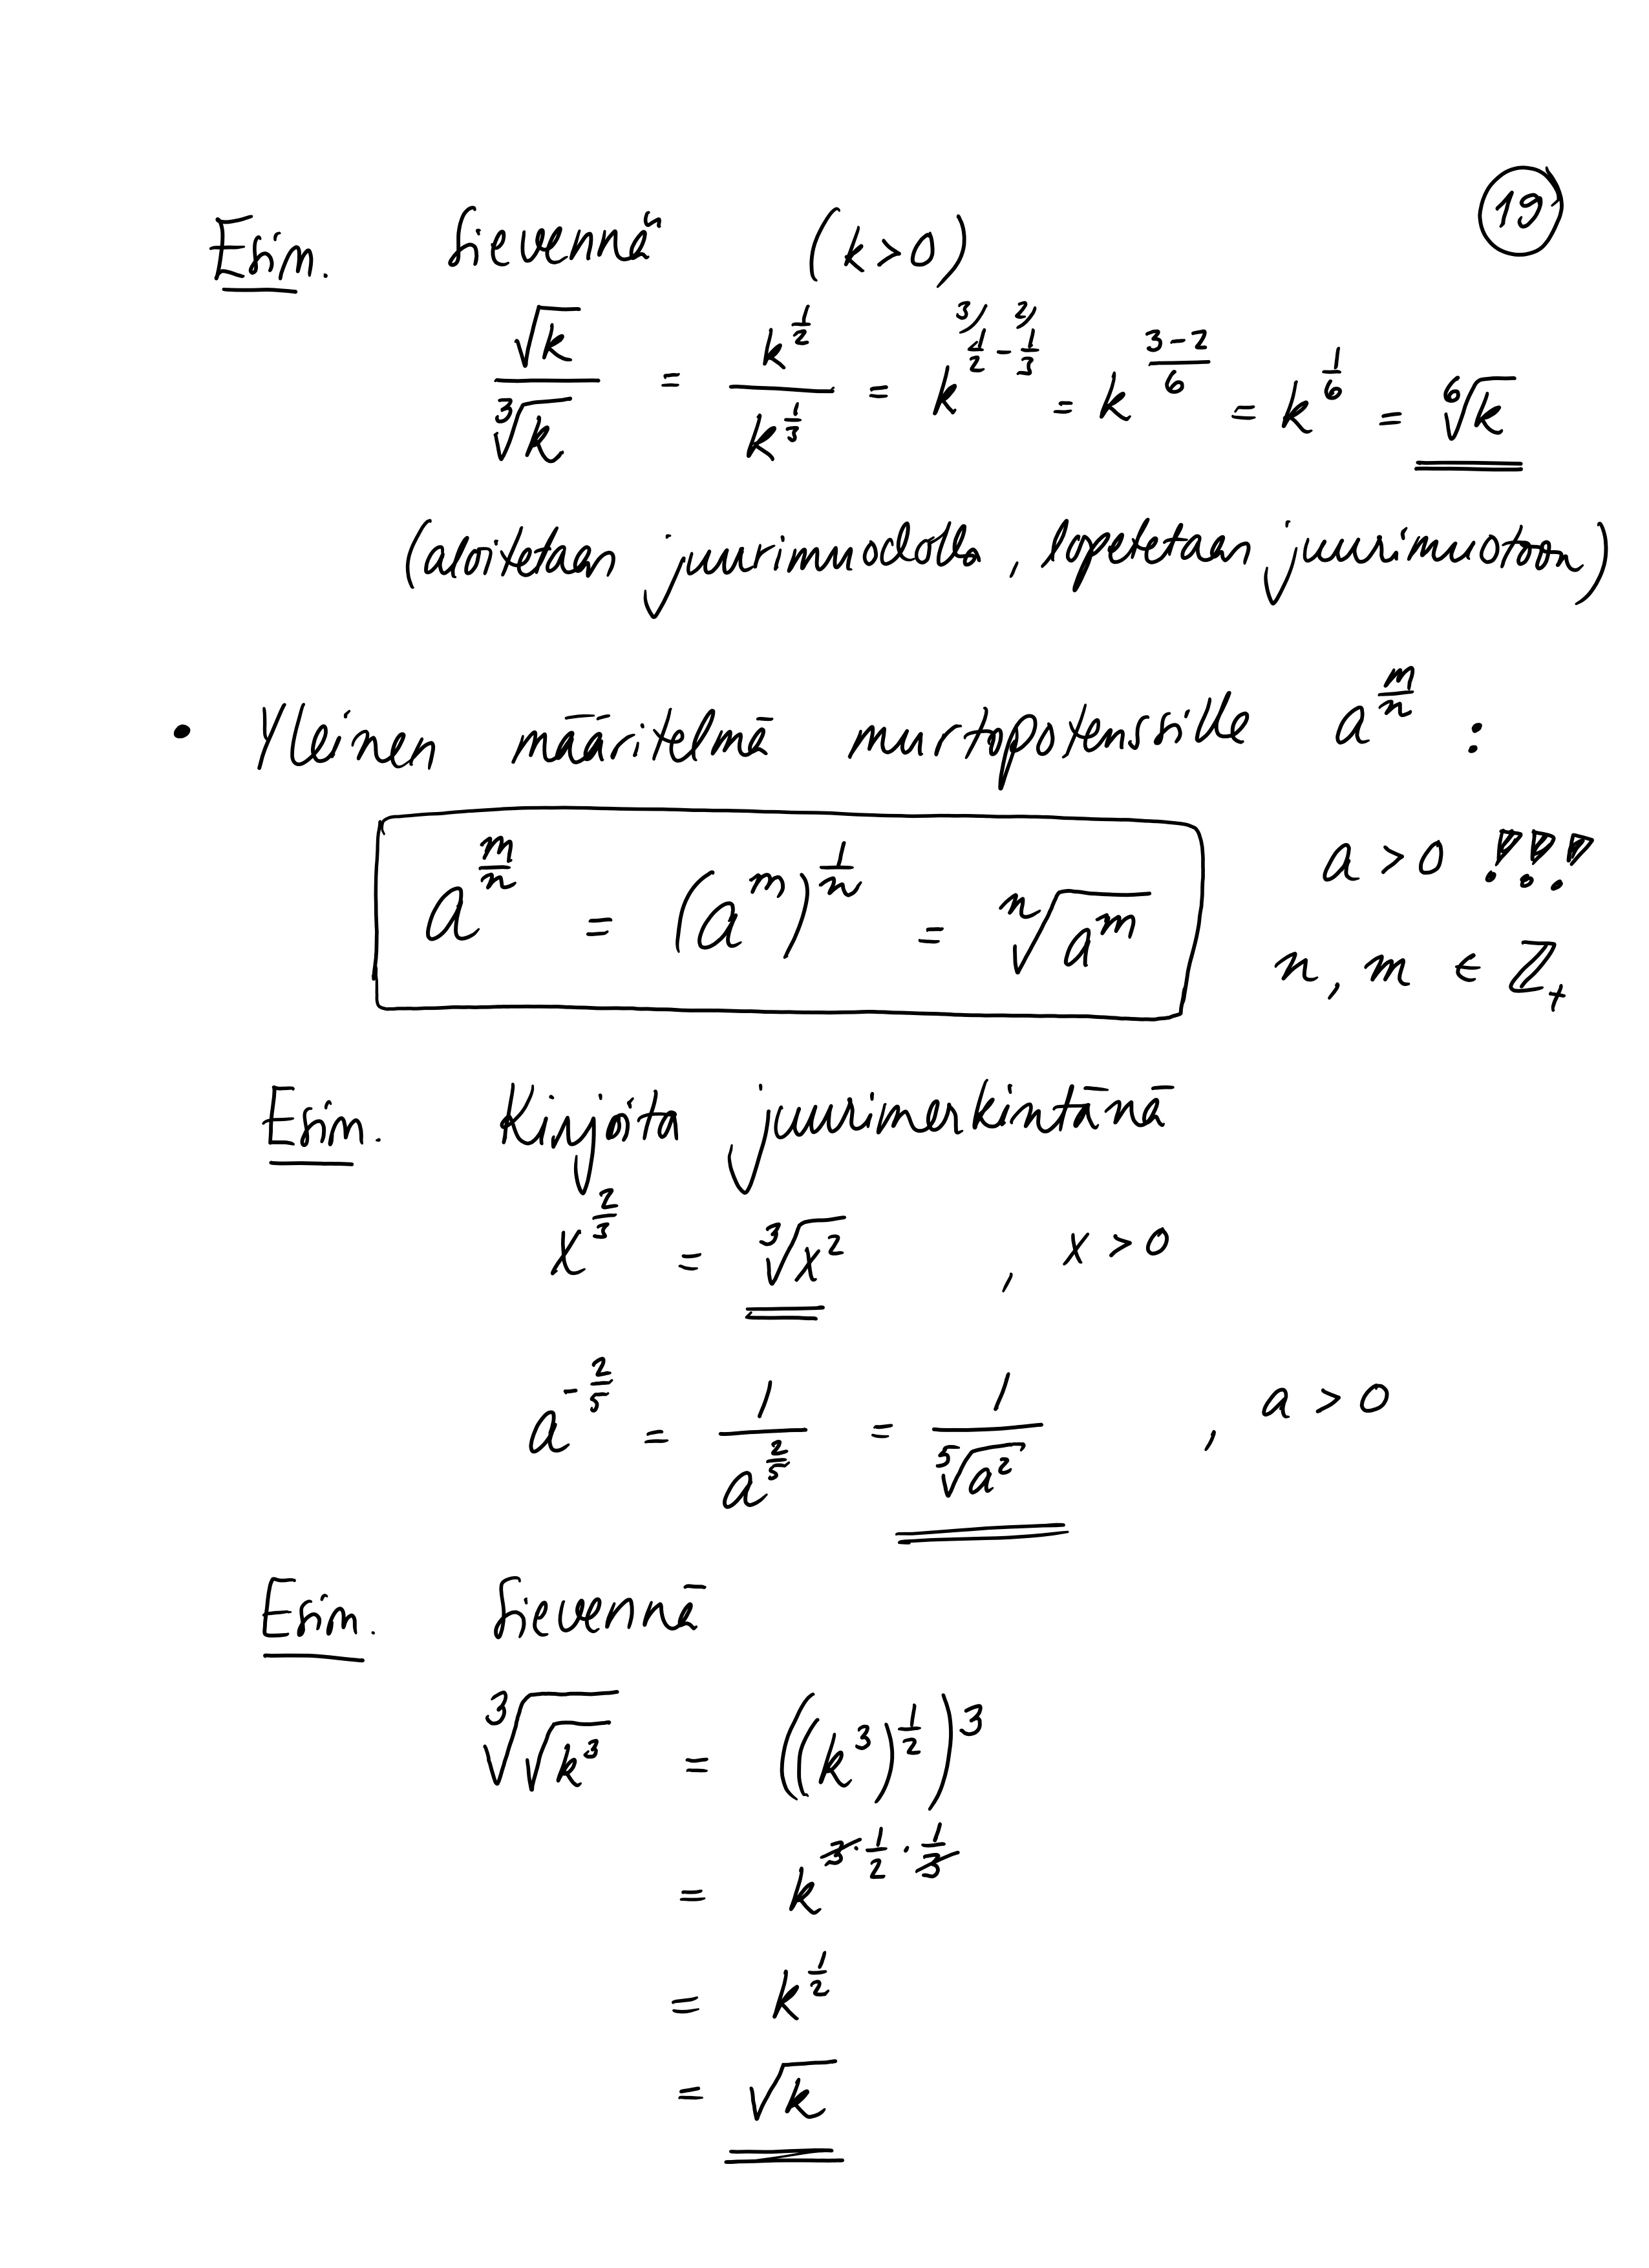 19
Esim. Sievennä (k > 0)
√k / ³√k = k^(1/2) / k^(1/3) = k^(³⁾1/2 - ²⁾1/3) = k^((3-2)/6) = k^(1/6) = ⁶√k
(aloitetaan juurimuodolla, lopetetaan juurimuotoon)
• Yleinen määritelmä murtopotenssille a^(m/n) :
a^(m/n) = (a^m)^(1/n) = ⁿ√(a^m) a > 0 !!!
n, m ∈ ℤ₊
Esim. Kirjoita juurimerkintänä
x^(2/3) = ³√(x²) , x > 0
a^(-2/5) = 1 / a^(2/5) = 1 / ⁵√(a²) , a > 0
Esim. Sievennä
³√(√(k³)) = ((k³)^(1/2))^3
= k^(3 · 1/2 · 1/3)
= k^(1/2)
= √k